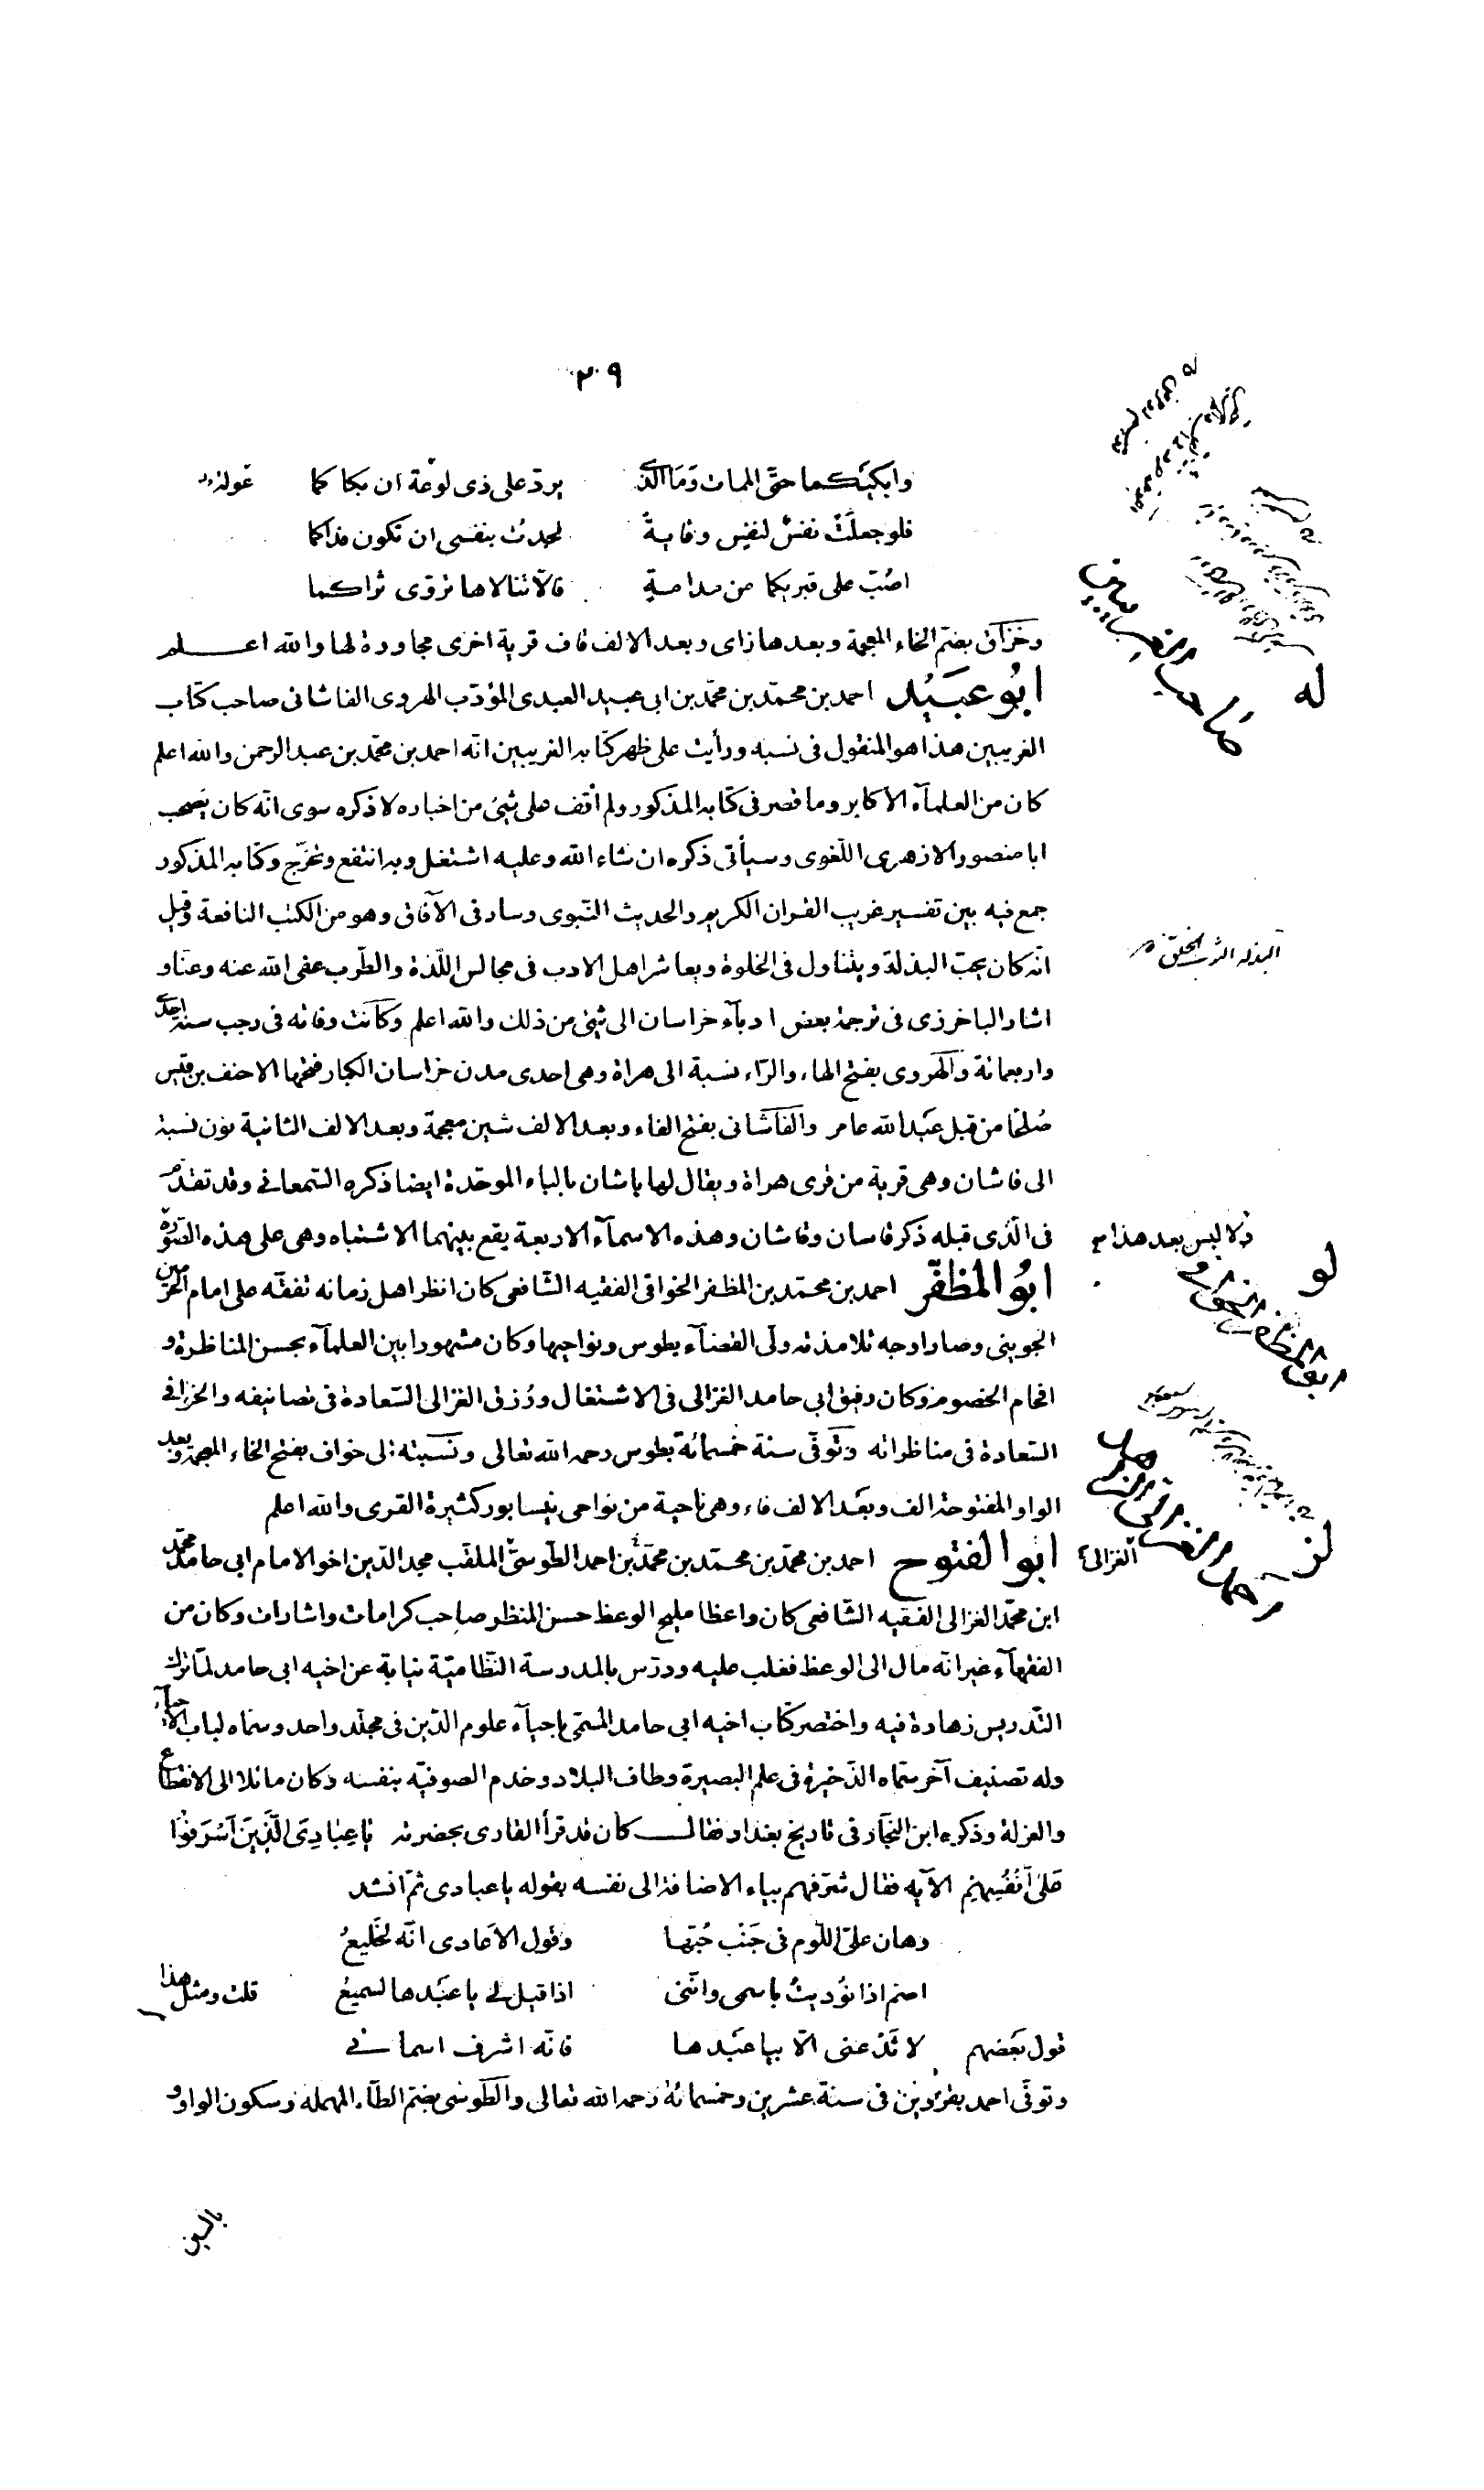 ٢٠٩
وابكيكما حتّى الممات وَمَا الّذى يردّ على ذى لوعة ان بكاكما
فلو جعلَتْ نفسٌ لنفسٍ وقايةً لجدتُ بنفسى ان تكون فداكما
اصُبّ على قبريكما من مدامةٍ فالّا تنالاها تروّى ثراكما
وخُزَاق بضمّ الخاء المعجمة وبعدها زاى وبعد الالف قاف قرية اخرى مجاورة لها والله اعلم
ابُو عبَيُد احمد بن محمّد بن محمّد بن ابى عبيد العبدى المؤدّب الهروى الفاشانى صاحب كتاب
الغريبين هذا هو المنقول فى نسبه ورأيت على ظهر كتابه الغريبين انّه احمد بن محمّد بن عبد الرحمن والله اعلم
كان من العلمآء الاكابر وما قصر فى كتابه المذكور ولم أقف على شئ من اخباره لاذكره سوى انّه كان يصحب
ابا منصور الازهرى اللّغوى وسيأتى ذكره ان شاء الله وعليه اشتغل وبه انتفع وتخرّج وكتابه المذكور
جمع فيه بين تفسير غريب القران الكريم والحديث النّبوى وسار فى الآفاق وهو من الكتب النافعة وقيل
انّه كان يحبّ البذلة ويتناول فى الخلوة ويعاشر اهل الادب فى مجالس اللّذة والطّرب عفى الله عنه وعنّا و
اشار الباخرزى فى ترجمة بعض ادبآء خراسان الى شئ من ذلك والله اعلم وكانت وفاته فى رجب سنة احدى
واربعمائة والهروى بفتح الهاء والرّاء نسبة الى هراة وهى احدى مدن خراسان الكبار فتحها الاحنف بن قيس
صُلحًا من قبل عَبد الله عامر والفاشانى بفتح الفاء وبعد الالف شين معجمة وبعد الالف الثانية نون نسبة
الى فاشان وهى قرية من قرى هراة ويقال لها باشان بالباء الموحّدة ايضا ذكره السّمعانى وقد تقدّم
فى الّذى قبله ذكر قاسان وقاشان وهذه الاسمآء الاربعة يقع بينهما الاشتباه وهى على هذه الصّورة
فلا لبس بعد هذا
ابُو المظفّر احمد بن محمّد بن المظفر الخوافى الفقيه الشّافعى كان انظر اهل زمانه تفقّه على امام الحرمين
الجوينى وصار اوجه تلامذته ولّى القضآء بطوس ونواحيها وكان مشهورا بين العلمآء بحسن المناظرة و
افحام الخصوم وكان رفيق ابى حامد الغزالى فى الاشتغال ورُزق الغزالى السّعادة فى تصانيفه والخوافى
السّعادة فى مناظراته وتوفّى سنة خمسمائة بطوس رحمه الله تعالى ونسبته الى خواف بفتح الخاء المعجمة وبعد
الواو المفتوحة الف وبعَد الالف فاء وهى ناحية من نواحى نيسابور كثيرة القرى والله اعلم
ابو الفتوح احمد بن محمّد بن محمّد بن محمّد بن احمد الطّوسىّ الملقّب مجد الدّين اخو الامام ابى حامد محمّد
الغزالى
ابن محمّد الغزالى الفقيه الشّافعى كان واعظا مليح الوعظ حسن المنظر صاحب كرامات واشارات وكان من
الفقهآء غير انّه مال الى الوعظ فغلب عليه ودرّس بالمدرسة النّظاميّة نيابة عن اخيه ابى حامد لمّا ترك
التّدريس زهادة فيه واختصر كتاب اخيه ابى حامد المسمّى باحيآء علوم الدّين فى مجلّد واحد وسمّاه لباب الاحيآء
وله تصنيف آخر سمّاه الذّخيرة فى علم البصيرة وطاف البلاد وخدم الصوفيّه بنفسه وكان مائلا الى الانقطاع
والعزلة وذكره ابن النجّار فى تاريخ بغداد فقال كان قد قرأ القارى بحضرته يٰا عِبٰادِىَ الَّذِينَ اَسْرَفُوا
عَلىٰ اَنْفُسِهِمْ الآيه فقال شرّفهم بياء الاضافة الى نفسه بقوله يا عبادى ثمّ انشد
وهان علىّ اللّوم فى جَنْب حُبّها وقول الاعادى انّه لخَليعُ
اصمّ اذا نوُديتُ باسمى وانّنى اذا قيل لى يا عبَدها لسميعُ قلت ومثل هذا
قول بَعضهم لا تَدْعنى الّا بيا عَبدها فانّه اشرف اسمائى
وتوفّى احمد بقزوين فى سنة عشرين وخمسمائة رحمه الله تعالى والطوسى بضمّ الطّاء المهمله وسكون الواو و
له
صاحب الغريبين
لو
ابو المظفر الخوافى
لز
احمد الغزالى
بالسين